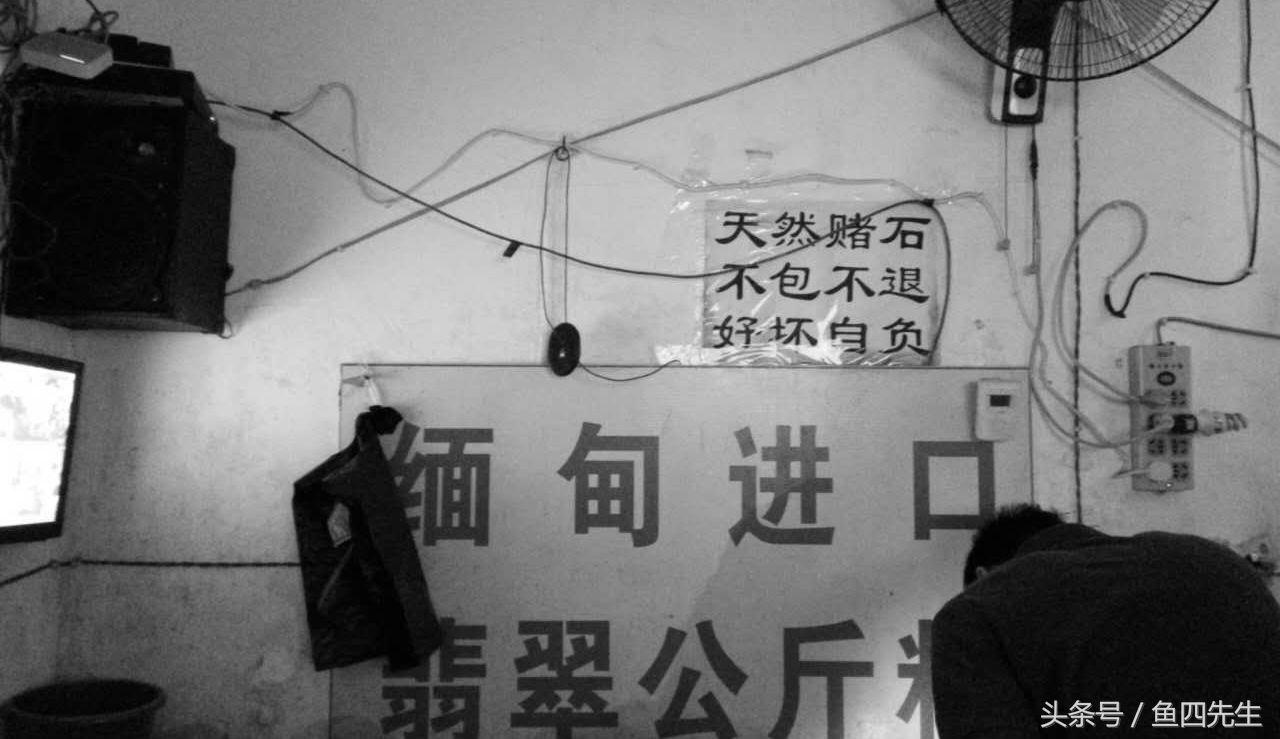 天然赌石
不包不退
好坏自负
缅甸进口
翡翠公斤
头条号 / 鱼四先生